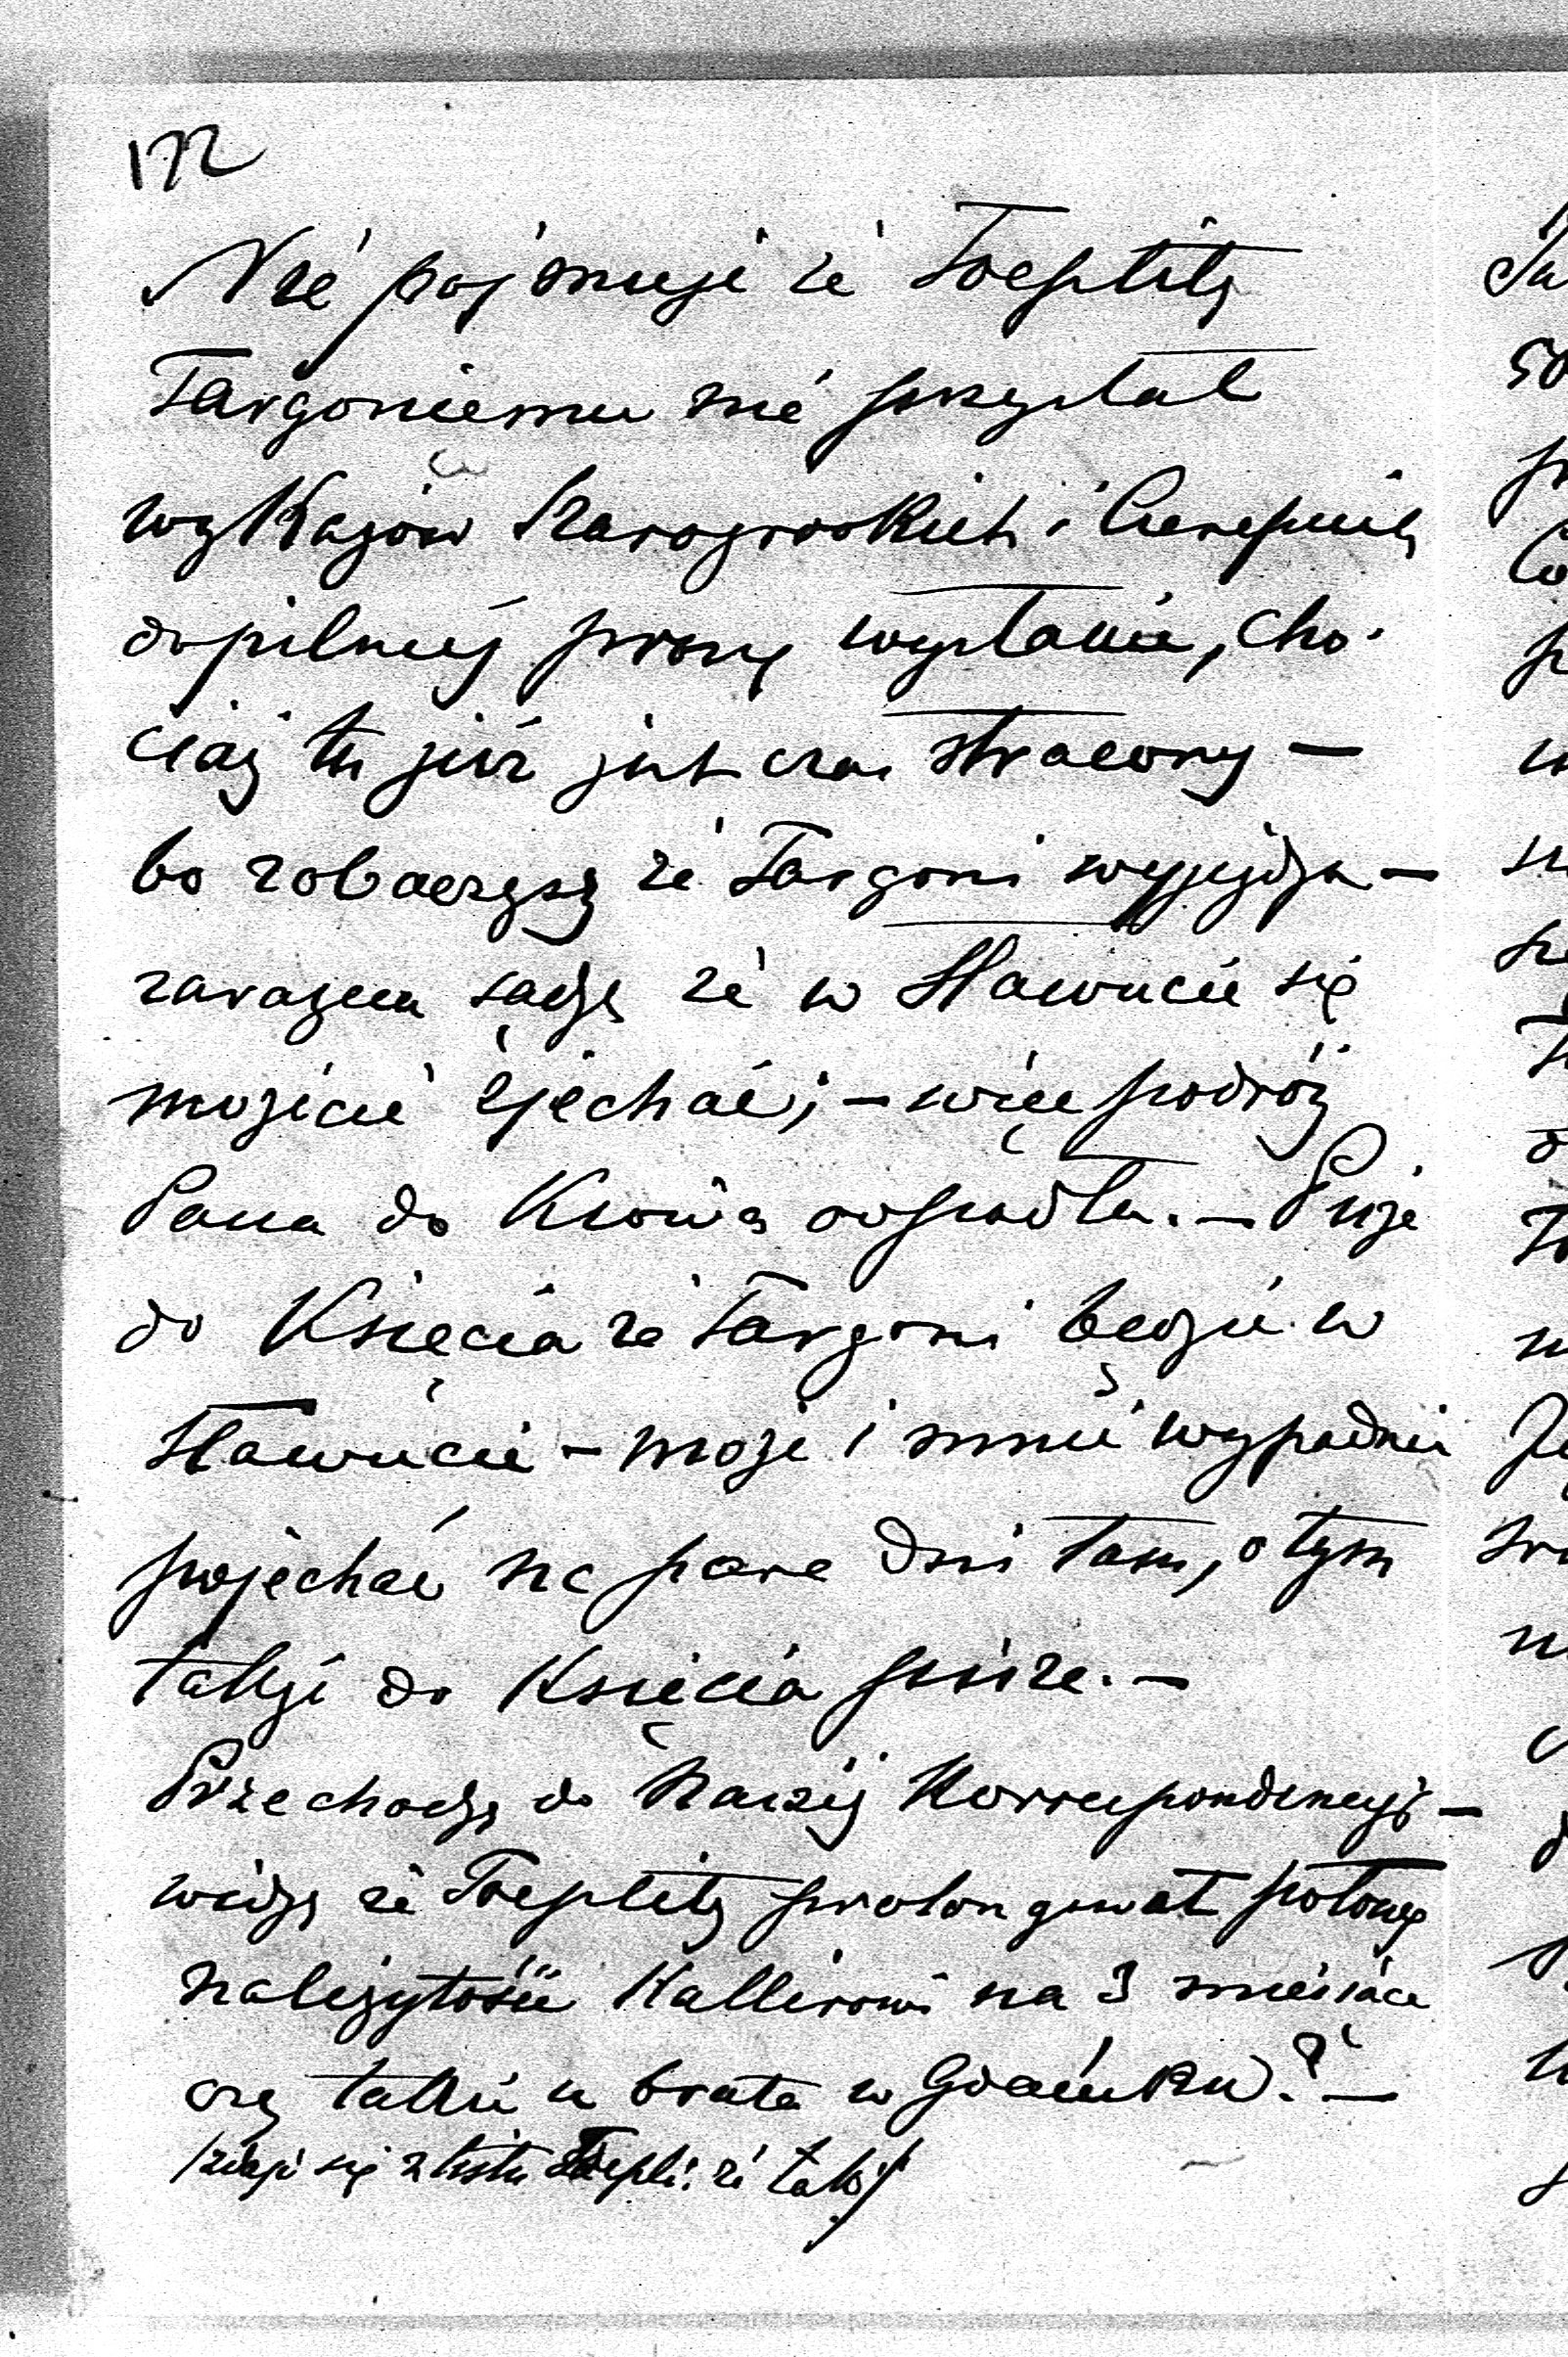 172
Nie pojmuję że Toeplitz
Targoniemu nie przysłał
wykazów Starogrodzkich i Czerepinię
dopilnuj proszę wysłanie, cho-
ciaż tu już jest czas stracony —
bo zobaczysz że Targoni wyjeżdża —
zarazem sądzę że w Sławucie się
możecie zjechać; — więc podróż
Pana do Kijowa odpadła. — Piszę
do Księcia że Targoni będzie w
Sławucie — może i mnie wypadnie
pojechać na parę dni tam, o tym
także do Księcia piszę. —
Przechodzę do naszej Korrespondencyi —
widzę że Toeplitz prolongował połowę
należytości Hallerowi na 3 miesiące
czy także u brata w Gdańsku? —
/zdaje się z listu Toepli: że tak/